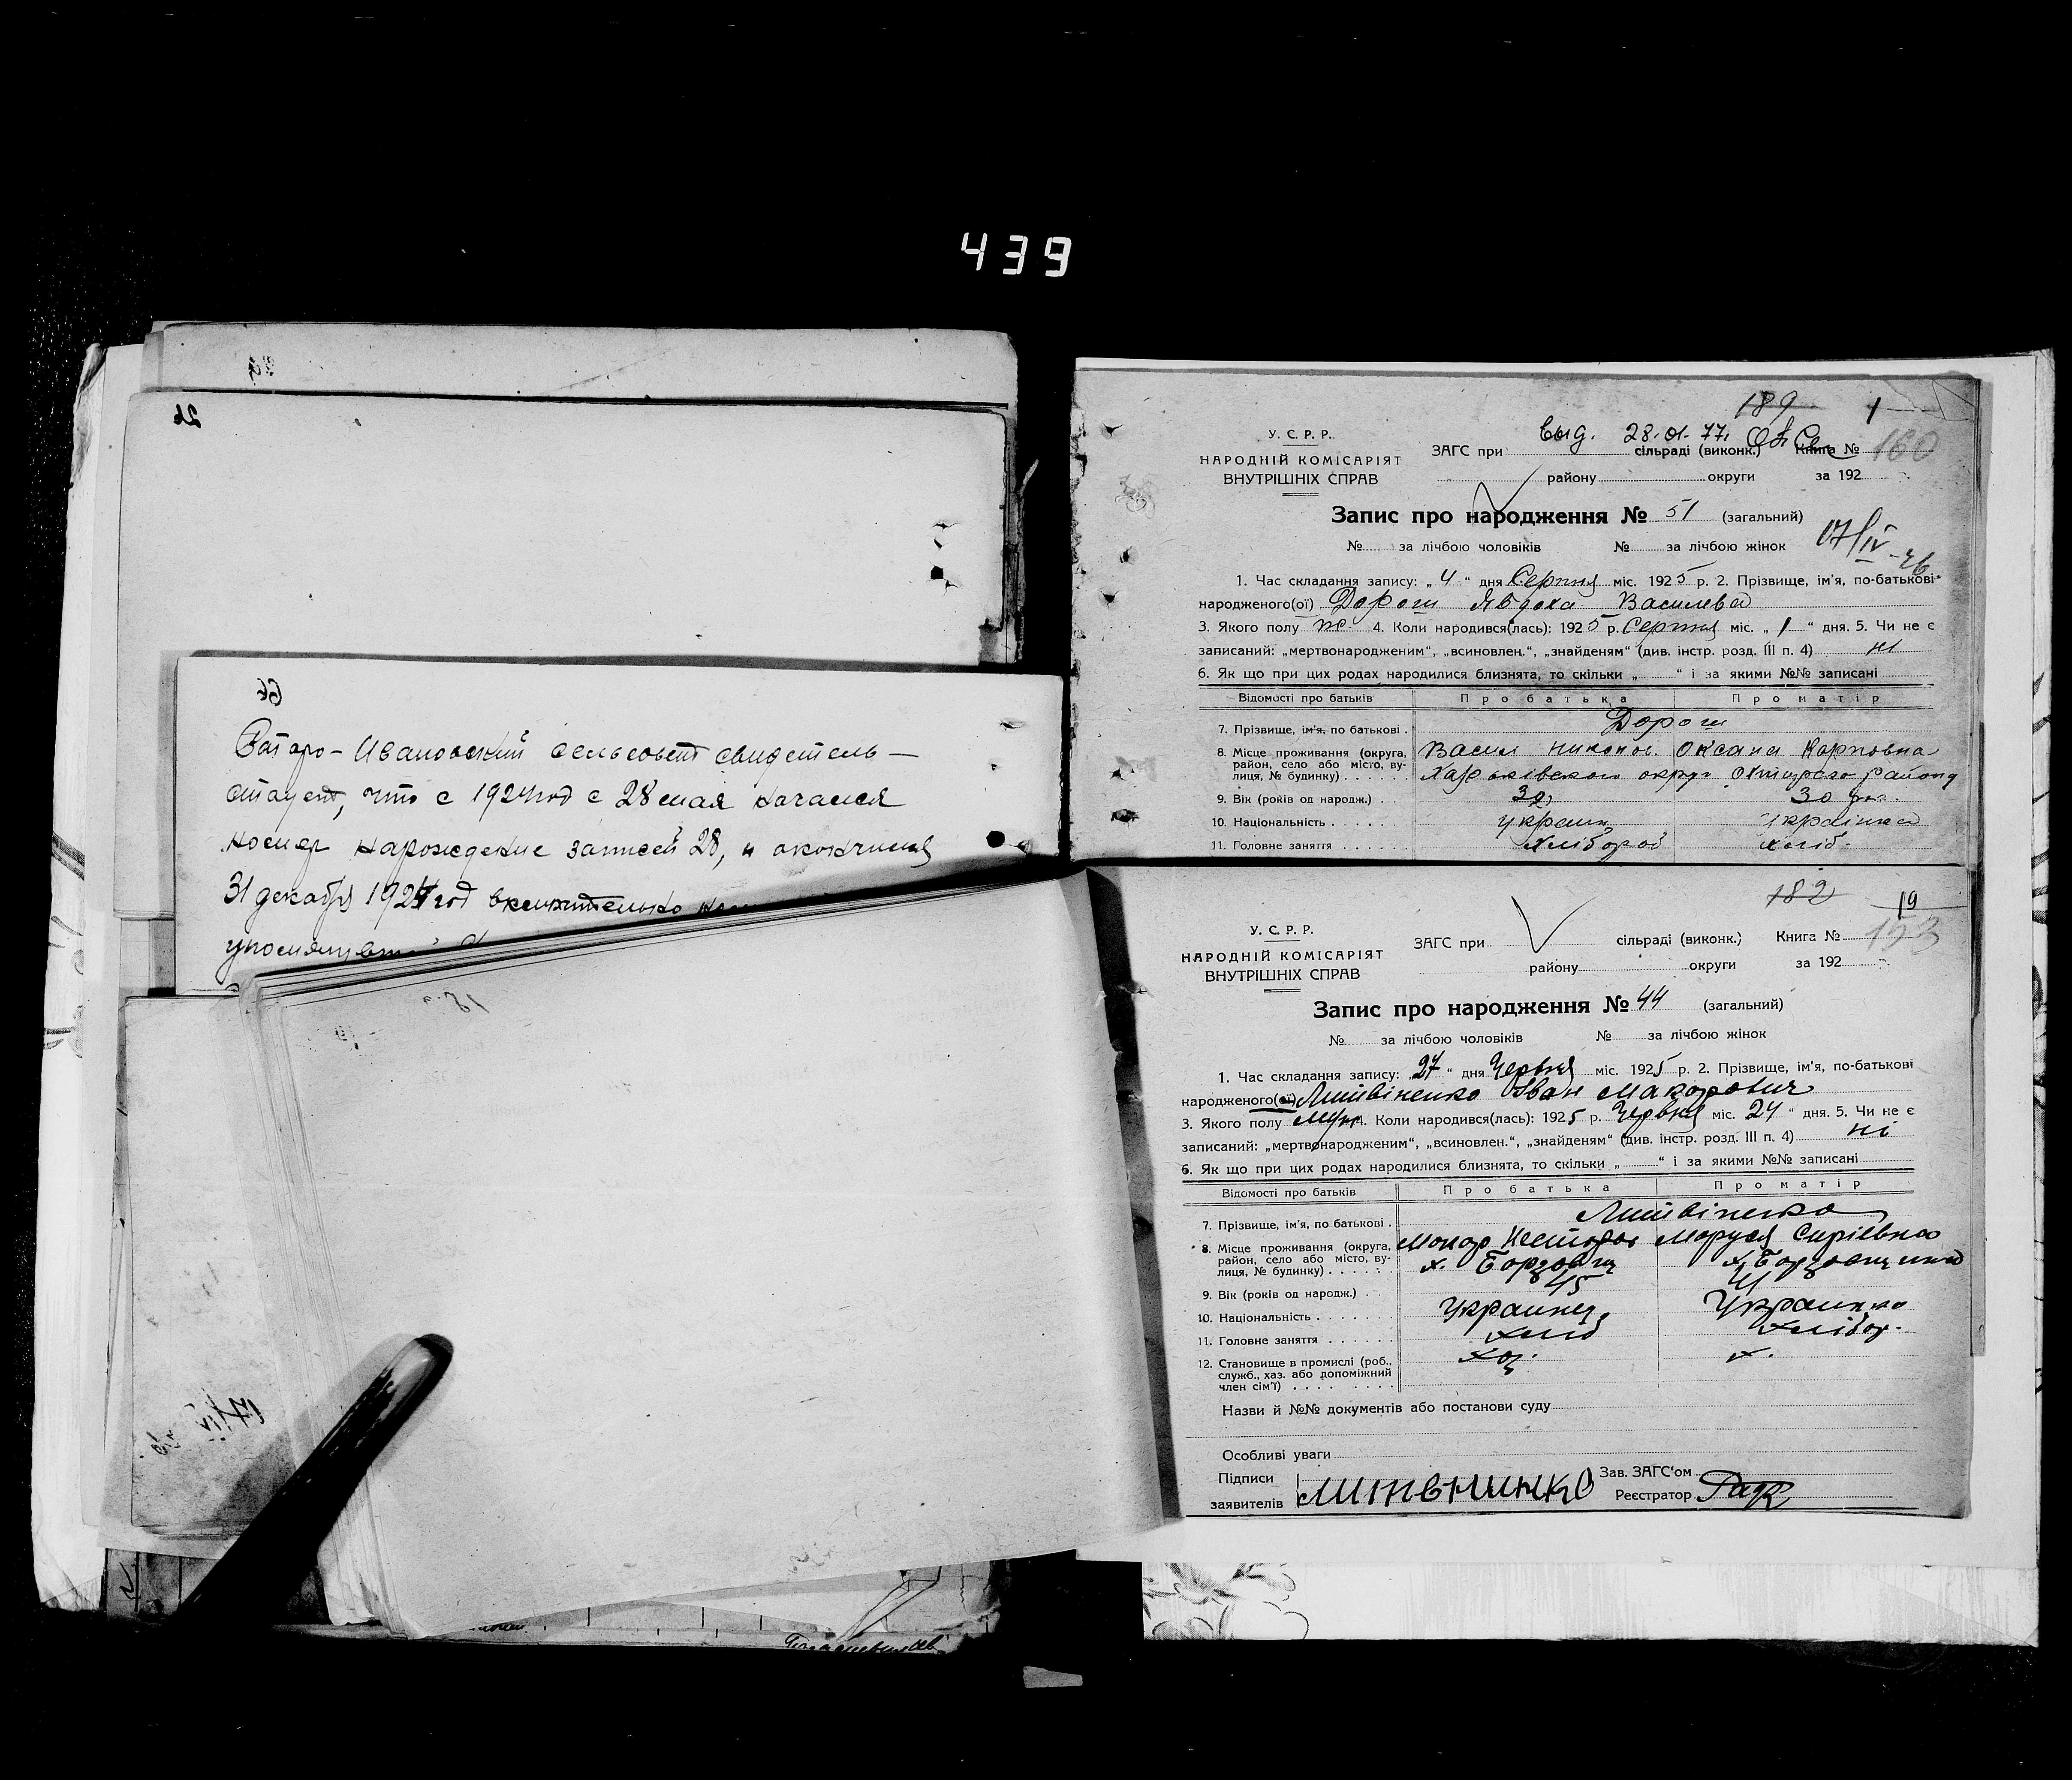 439
26
Ватаро-Ивановский сельсовет свидетель-
ствует, что с 1924 год с 28 мая начался
номер нарождение записей 28, и окончился
31 декабря 1924 год включительно
189 1
У. С. Р. Р.
НАРОДНІЙ КОМІСАРІЯТ
ВНУТРІШНІХ СПРАВ
Выд. 28.01.77.
ЗАГС при сільраді (виконк.) Книга № 160
району округи за 192
Запис про народження № 51 (загальний)
№ за лічбою чоловіків № за лічбою жінок 17/IV-76
1. Час складання запису: „4“ дня Серпня міс. 1925 р. 2. Прізвище, ім'я, по-батькові
народженого(ої) Дорош Явдоха Василева
3. Якого полу ж. 4. Коли народився(лась): 1925 р. Серпня міс. „1“ дня. 5. Чи не є
записаний: „мертвонародженим“, „всиновлен.“, „знайденям“ (див. інстр. розд. III п. 4) ні
6. Як що при цих родах народилися близнята, то скільки „ “ і за якими №№ записані
Відомості про батьків Про батька Про матір
7. Прізвище, ім'я, по батькові . Дорош
Васил Никопол. Оксана Карповна
8. Місце проживання (округа, район, село або місто, ву-
лиця, № будинку) . . . . . Харьківского округ Охтирсько району
9. Вік (років од народж.) . . 30 30
10. Національність . . . . . . украин українка
11. Головне заняття . . . . . . хлібороб хліб.
182 19
У. С. Р. Р.
НАРОДНІЙ КОМІСАРІЯТ
ВНУТРІШНІХ СПРАВ
ЗАГС при сільраді (виконк.) Книга № 153
району округи за 192
Запис про народження № 44 (загальний)
№ за лічбою чоловіків № за лічбою жінок
1. Час складання запису: „27“ дня Червня міс. 1925 р. 2. Прізвище, ім'я, по-батькові
народженого(ої) Литвіненко Іван Макарович
3. Якого полу муж 4. Коли народився(лась): 1925 р. Червня міс. 24“ дня. 5. Чи не є
записаний: „мертвонародженим“, „всиновлен.“, „знайденям“ (див. інстр. розд. III п. 4) ні
6. Як що при цих родах народилися близнята, то скільки „ “ і за якими №№ записані
Відомості про батьків Про батька Про матір
7. Прізвище, ім'я, по батькові . Литвіненко
Макар Несторов Маруся Сиріевна
8. Місце проживання (округа,
район, село або місто, ву-
лиця, № будинку) . . . . . х. Борзовщ х. Борзовщина
9. Вік (років од народж.) . . 45 41
10. Національність . . . . . . Украинец. Украинка
11. Головне заняття . . . . . . хліб хлібор.
12. Становище в промислі (роб.,
служб., хаз. або допоміжний
член сім'ї) . . . . хоз. х.
Назви й №№ документів або постанови суду
Особливі уваги
Підписи
заявителів Литвниинко
Зав. ЗАГС'ом
Реєстратор